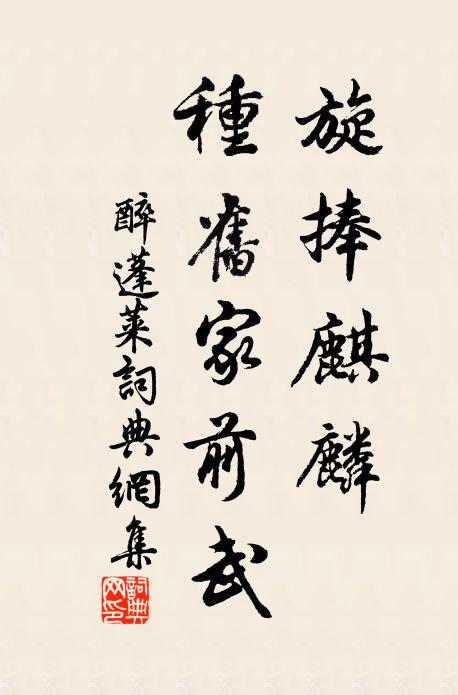 旋捧麒麟
種舊家前武
醉蓬萊詞典網集
詞典網印